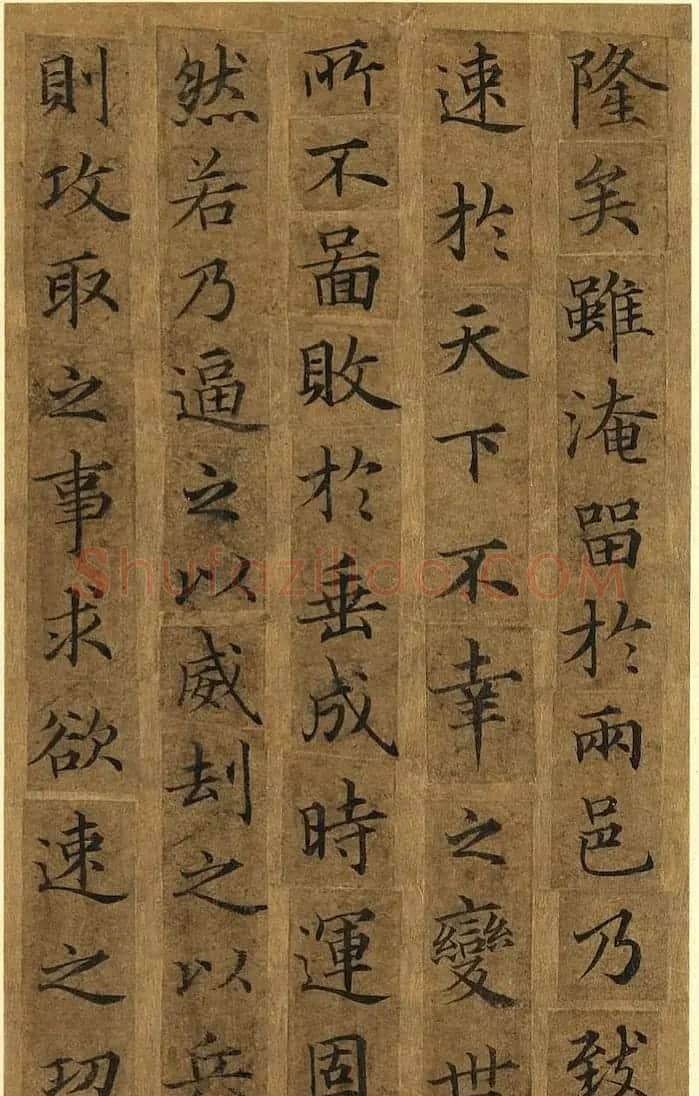 隆矣雖淹留於兩邑乃致
速於天下不幸之變世
所不圖敗於垂成時運固
然若乃逼之以威刦之以兵
則攻取之事求欲速之功
Shufaziliao.COM